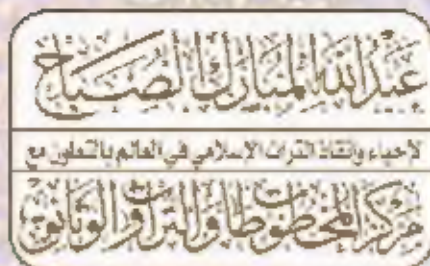 عبد الله المبارك الصباح
لإحياء وإنقاذ التراث الإسلامي في العالم بالتعاون مع
مركز المخطوطات والتراث والوثائق